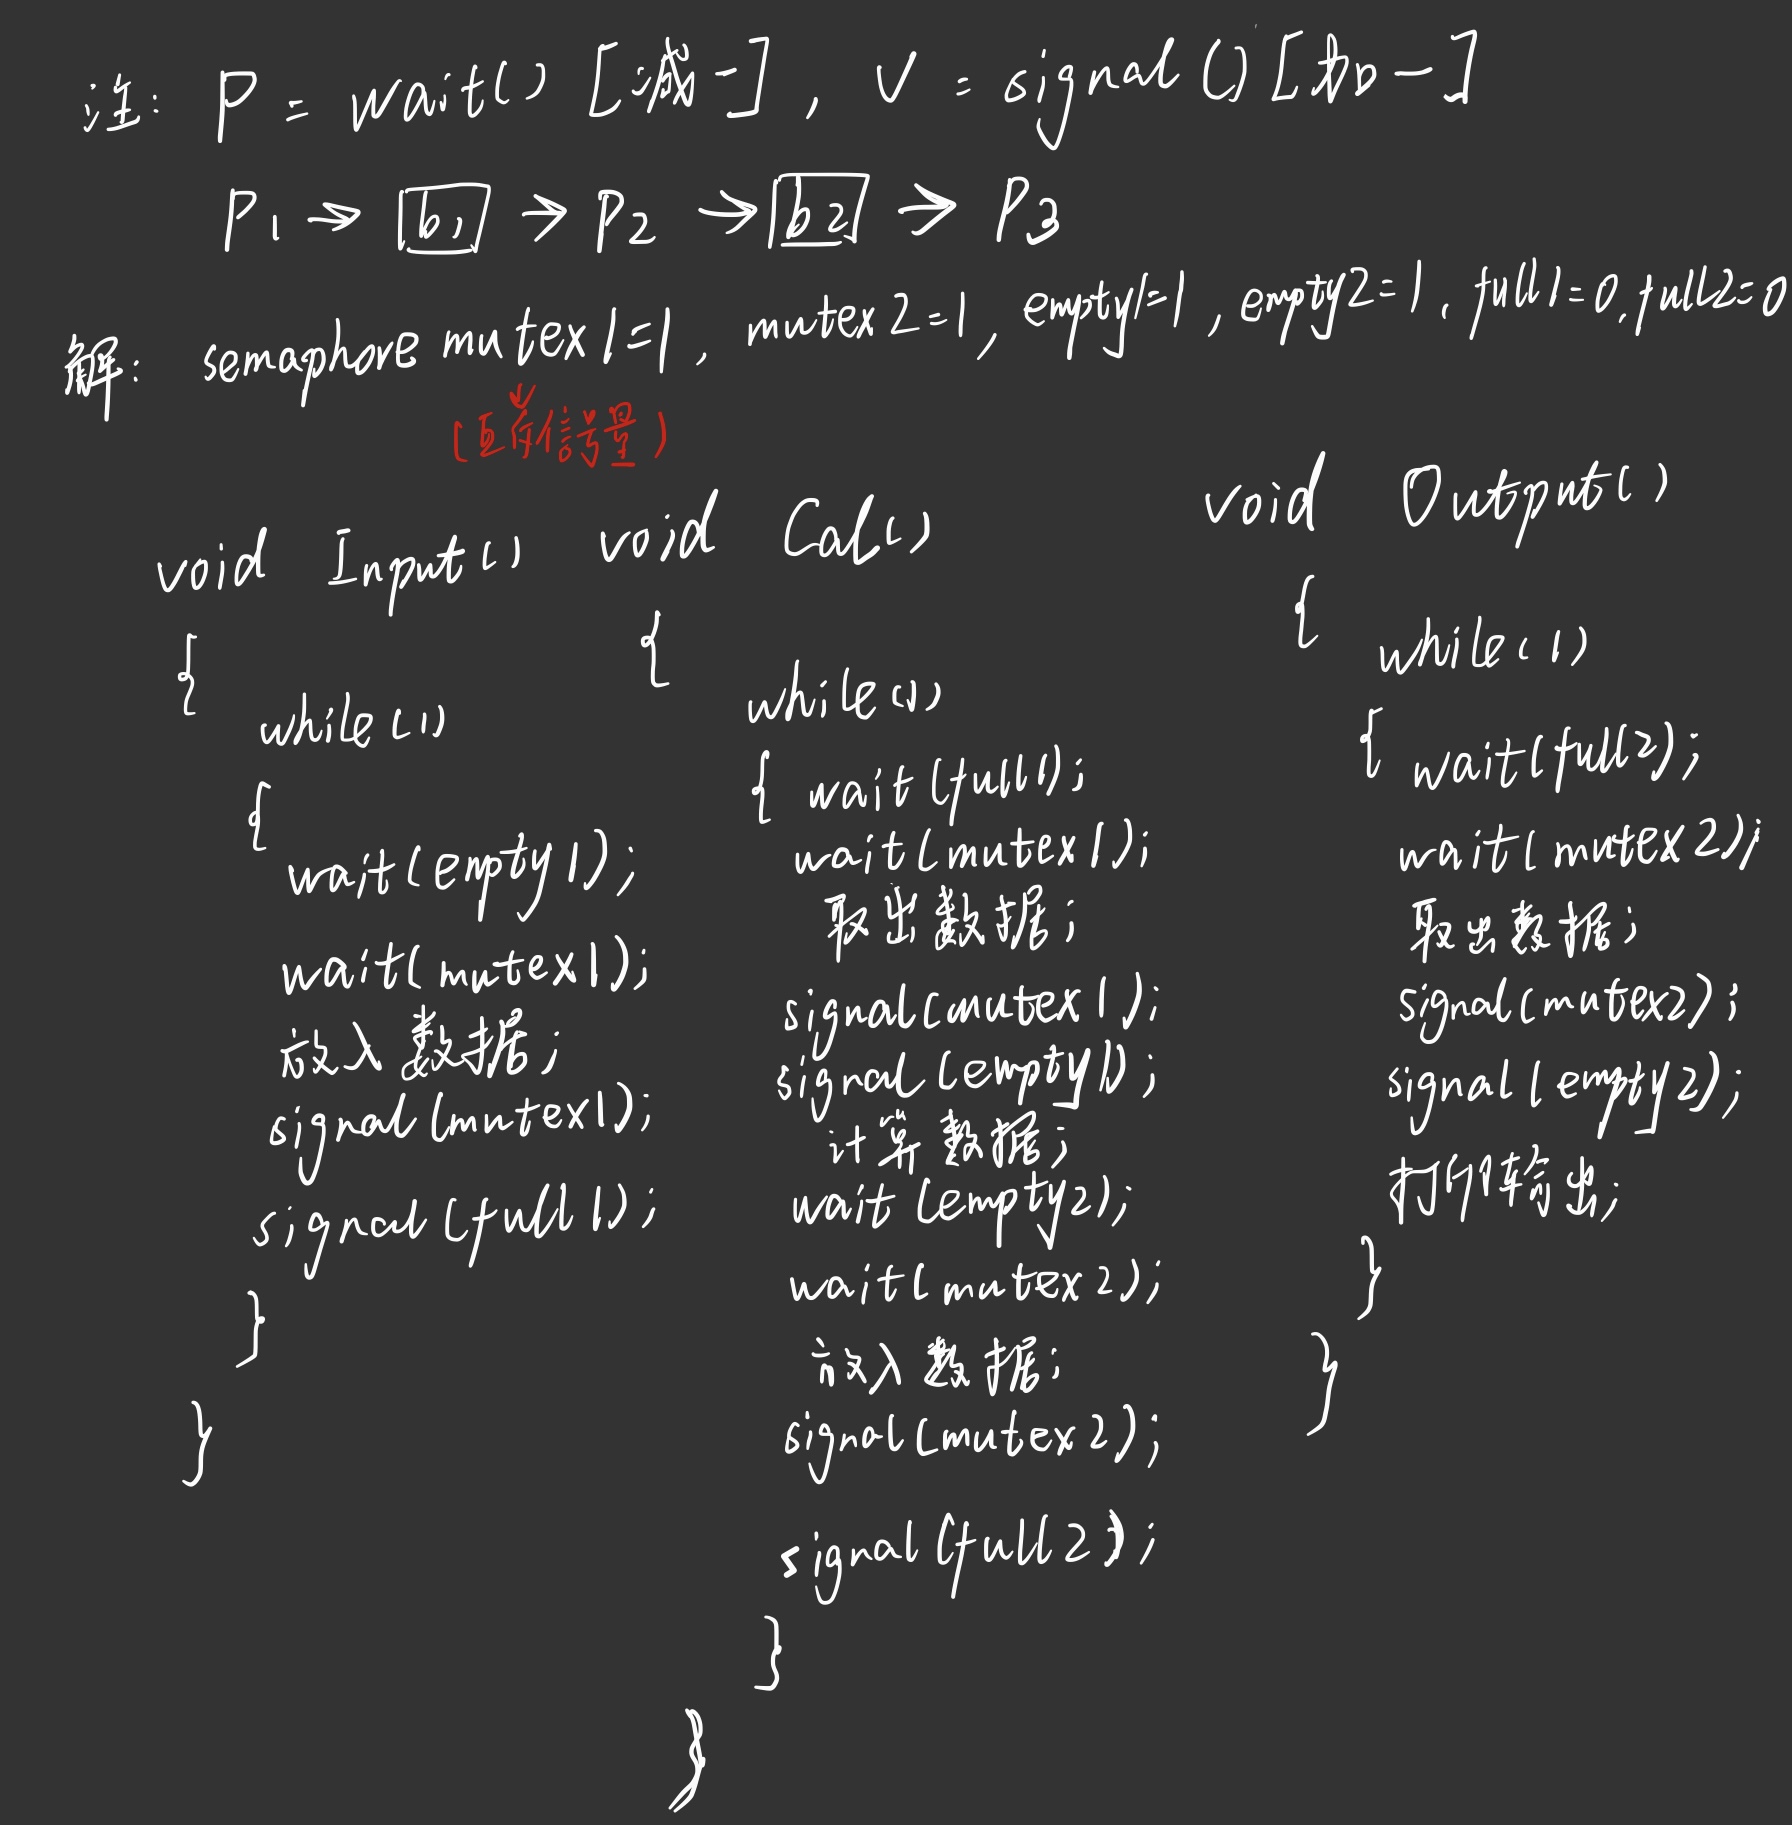 注: P = wait() [减一], V = signal()[加一]
P1 → b1 → P2 → b2 → P3
解: semaphore mutex1=1, mutex2=1, empty1=1, empty2=1, full1=0, full2=0
(互斥信号量)
void Input()
{
while(1)
{
wait(empty1);
wait(mutex1);
放入数据;
signal(mutex1);
signal(full1);
}
}
void Cal()
{
while(1)
{ wait(full1);
wait(mutex1);
取出数据;
signal(mutex1);
signal(empty1);
计算数据;
wait(empty2);
wait(mutex2);
放入数据;
signal(mutex2);
signal(full2);
}
}
void Output()
{
while(1)
{ wait(full2);
wait(mutex2);
取出数据;
signal(mutex2);
signal(empty2);
打印输出;
}
}